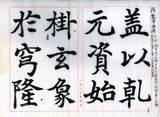 盖以乾
元資始
掛玄象
於穹隆